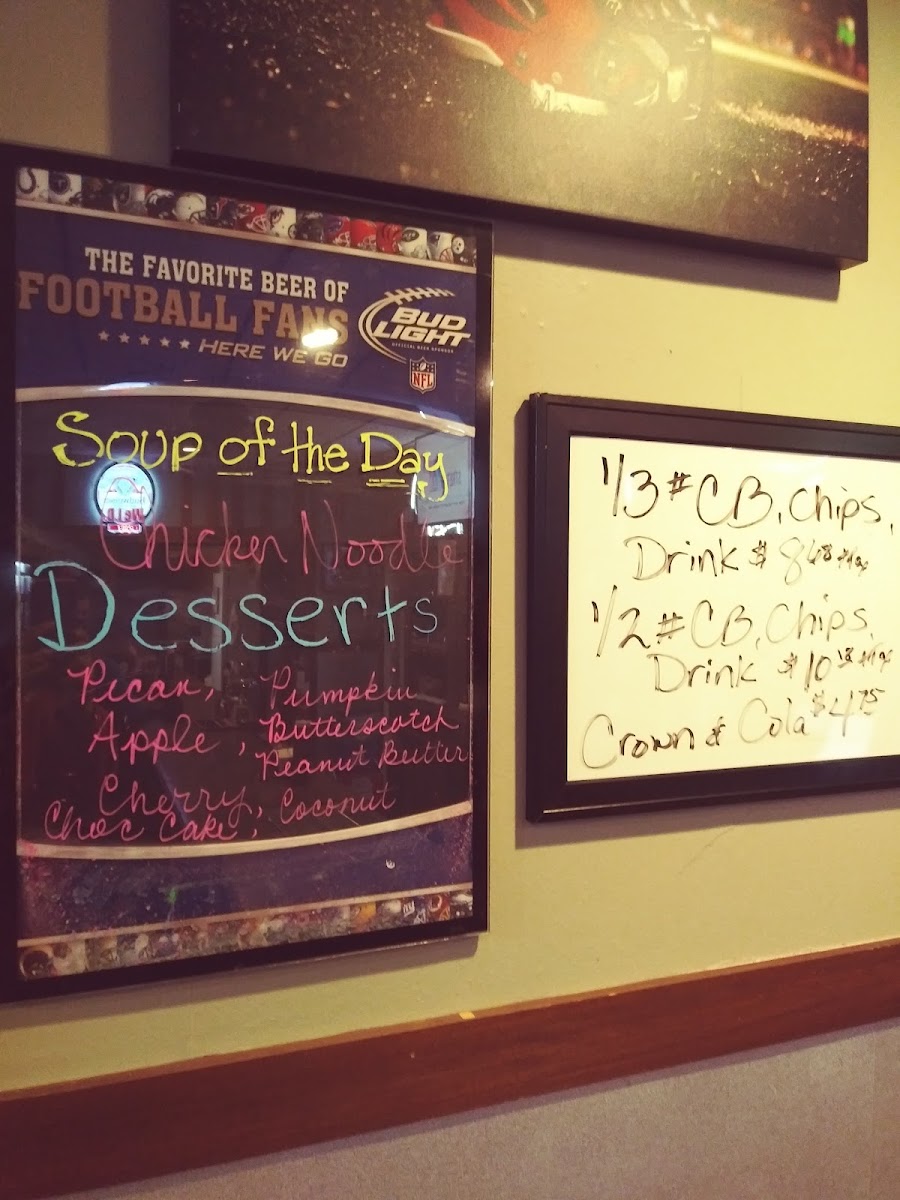 THE FAVORITE BEER OF
FOOTBALL FANS
HERE WE GO
BUD
LIGHT
OFFICIAL BEER SPONSOR
NFL
Soup of the Day
Chicken Noodle
Desserts
Pecan, Pumpkin
Apple, Butterscotch
Peanut Butter
Cherry, Coconut
Choc Cake,
1/3 # CB, Chips,
Drink $8.68 + tax
1/2 # CB, Chips,
Drink $10.18 + tax
Crown & Cola $4.75